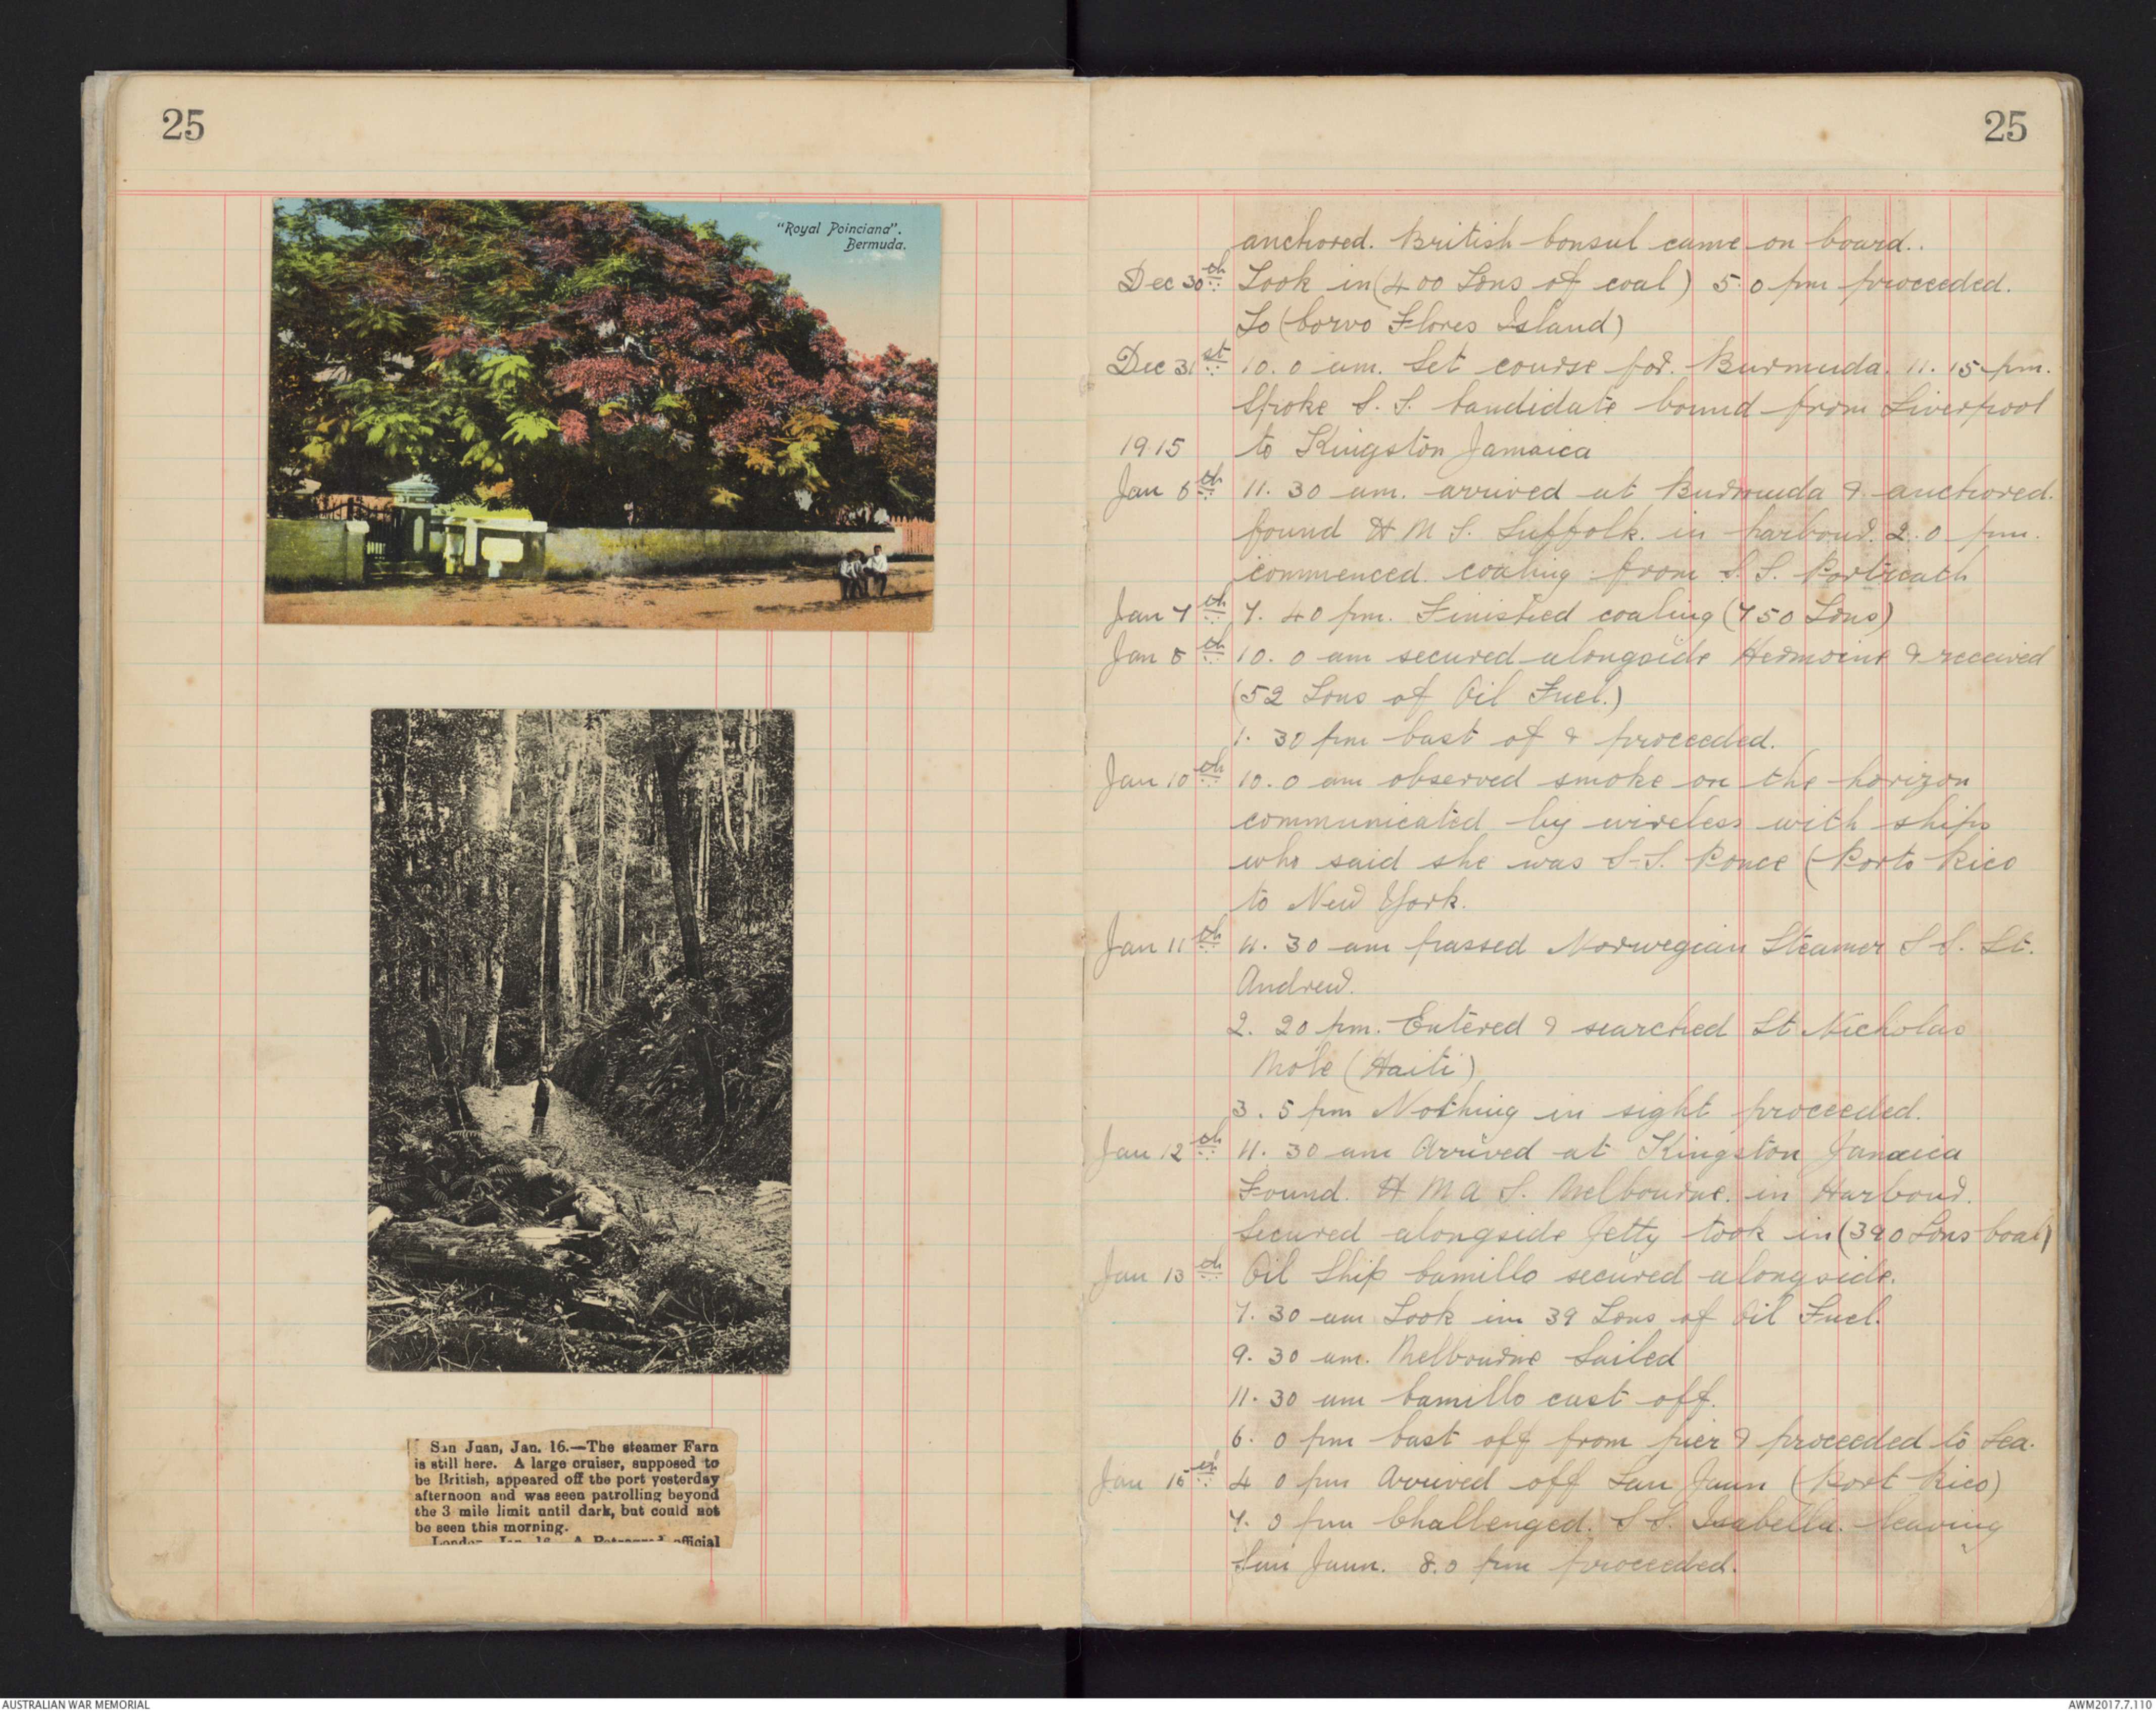 25
"Royal Poinciana".
Bermuda.
San Juan, Jan. 16.—The steamer Farn
is still here. A large cruiser, supposed to
be British, appeared off the port yesterday
afternoon and was seen patrolling beyond
the 3 mile limit until dark, but could not
be seen this morning.
London, Jan. 16. A Petrograd official
25
anchored. British Consul came on board.
Dec 30th Took in (400 Tons of coal) 5.0 pm proceeded.
To (Corvo Flores Island)
Dec 31st 10.0 am. Set course for. Burmuda. 11.15 pm.
Spoke S.S. Candidate bound from Liverpool
1915 to Kingston Jamaica
Jan 6th 11.30 am. arrived at Burmuda & anchored.
found H M S. Suffolk. in harbour. 2.0 pm.
commenced. coaling from S.S. Portreath
Jan 7th 7.40 pm. Finished coaling (750 Tons)
Jan 8th 10.0 am secured alongside Hermoine & received
(52 Tons of Oil Fuel.)
1.30 pm Cast of & proceeded.
Jan 10th 10.0 am observed smoke on the horizon
communicated by wireless with ships
who said she was S-S. Ponce (Porto Rico
to New York.
Jan 11th 11.30 am passed Norwegian Steamer S S. St.
Andrew.
2.20 pm. Entered & searched St Nicholas
Mole (Haiti)
3.5 pm Nothing in sight proceeded.
Jan 12th 11.30 am Arrived at Kingston Jamaica
Found. H M A S. Melbourne. in Harbour.
Secured alongside Jetty took in (390 Tons Coal)
Jan 13th Oil Ship Camillo secured alongside.
7.30 am Took in 39 Tons of Oil Fuel.
9.30 am. Melbourne Sailed
11.30 am Camillo cast off.
6.0 pm Cast off from pier & proceeded to Sea.
Jan 15th 4 0 pm Arrived off San Juan (Port Rico)
7.0 pm Challenged. S S. Isabella. leaving
San Juan. 8.0 pm proceeded.
AUSTRALIAN WAR MEMORIAL
AWM2017.7.110